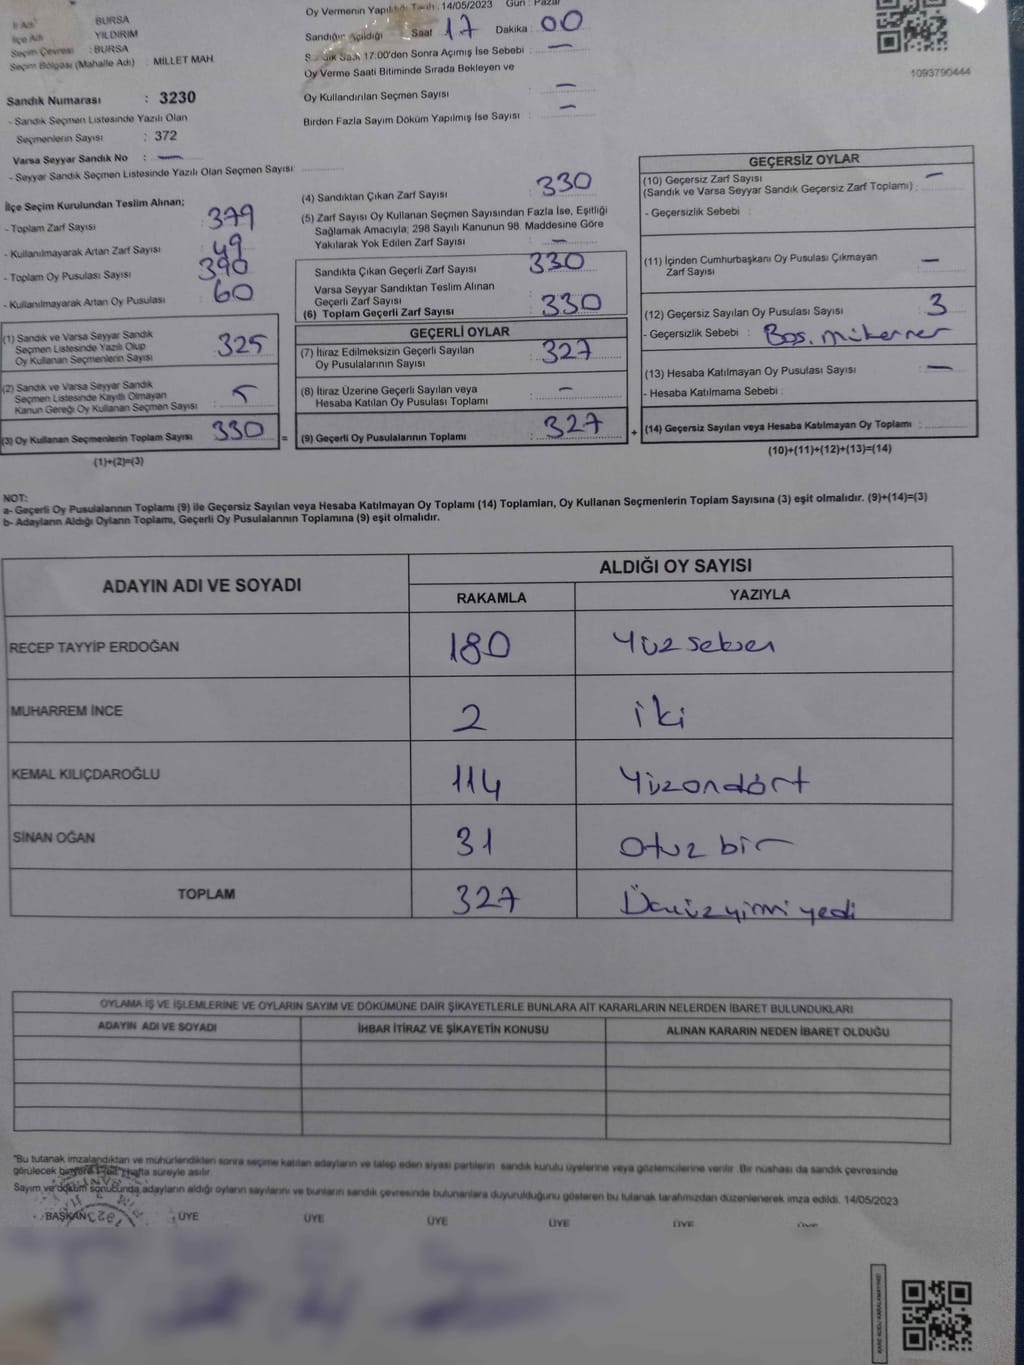 İli Adı BURSA
İlçe Adı YILDIRIM
Seçim Çevresi : BURSA
Seçim Bölgesi (Mahalle Adı) : MİLLET MAH.
Sandık Numarası : 3230
- Sandık Seçmen Listesinde Yazılı Olan
Seçmenlerin Sayısı : 372
Varsa Seyyar Sandık No : —
- Seyyar Sandık Seçmen Listesinde Yazılı Olan Seçmen Sayısı
Oy Vermenin Yapıldığı Tarih : 14/05/2023 Gün : Pazar
Sandığın Açıldığı Saat 17 Dakika : 00
Sandık Saat 17:00'den Sonra Açımış İse Sebebi : —
Oy Verme Saati Bitiminde Sırada Bekleyen ve
Oy Kullandırılan Seçmen Sayısı : —
Birden Fazla Sayım Döküm Yapılmış İse Sayısı : —
1093790444
İlçe Seçim Kurulundan Teslim Alınan;
- Toplam Zarf Sayısı : 379
- Kullanılmayarak Artan Zarf Sayısı : 49
- Toplam Oy Pusulası Sayısı : 390
- Kullanılmayarak Artan Oy Pusulası : 60
(1) Sandık ve Varsa Seyyar Sandık
Seçmen Listesinde Yazılı Olup
Oy Kullanan Seçmenlerin Sayısı : 325
(2) Sandık ve Varsa Seyyar Sandık
Seçmen Listesinde Kayıtlı Olmayan
Kanun Gereği Oy Kullanan Seçmen Sayısı : 5
(3) Oy Kullanan Seçmenlerin Toplam Sayısı : 330
(1)+(2)=(3)
(4) Sandıktan Çıkan Zarf Sayısı : 330
(5) Zarf Sayısı Oy Kullanan Seçmen Sayısından Fazla İse, Eşitliği
Sağlamak Amacıyla; 298 Sayılı Kanunun 98. Maddesine Göre
Yakılarak Yok Edilen Zarf Sayısı : —
Sandıkta Çıkan Geçerli Zarf Sayısı : 330
Varsa Seyyar Sandıktan Teslim Alınan
Geçerli Zarf Sayısı
(6) Toplam Geçerli Zarf Sayısı : 330
GEÇERLİ OYLAR
(7) İtiraz Edilmeksizin Geçerli Sayılan
Oy Pusulalarının Sayısı : 327
(8) İtiraz Üzerine Geçerli Sayılan veya
Hesaba Katılan Oy Pusulası Toplamı : —
= (9) Geçerli Oy Pusulalarının Toplamı : 327
GEÇERSİZ OYLAR
(10) Geçersiz Zarf Sayısı
(Sandık ve Varsa Seyyar Sandık Geçersiz Zarf Toplamı) : —
- Geçersizlik Sebebi :
(11) İçinden Cumhurbaşkanı Oy Pusulası Çıkmayan
Zarf Sayısı : —
(12) Geçersiz Sayılan Oy Pusulası Sayısı : 3
- Geçersizlik Sebebi : Boş. mükerrer
(13) Hesaba Katılmayan Oy Pusulası Sayısı : —
- Hesaba Katılmama Sebebi :
+ (14) Geçersiz Sayılan veya Hesaba Katılmayan Oy Toplamı :
(10)+(11)+(12)+(13)=(14)
NOT:
a- Geçerli Oy Pusulalarının Toplamı (9) ile Geçersiz Sayılan veya Hesaba Katılmayan Oy Toplamı (14) Toplamları, Oy Kullanan Seçmenlerin Toplam Sayısına (3) eşit olmalıdır. (9)+(14)=(3)
b- Adayların Aldığı Oyların Toplamı, Geçerli Oy Pusulalarının Toplamına (9) eşit olmalıdır.
ADAYIN ADI VE SOYADI ALDIĞI OY SAYISI
RAKAMLA YAZIYLA
RECEP TAYYİP ERDOĞAN 180 Yüz seksen
MUHARREM İNCE 2 iki
KEMAL KILIÇDAROĞLU 114 Yüzondört
SİNAN OĞAN 31 otuz bir
TOPLAM 327 Üçyüzyirmi yedi
OYLAMA İŞ VE İŞLEMLERİNE VE OYLARIN SAYIM VE DÖKÜMÜNE DAİR ŞİKAYETLERLE BUNLARA AİT KARARLARIN NELERDEN İBARET BULUNDUKLARI
ADAYIN ADI VE SOYADI İHBAR İTİRAZ VE ŞİKAYETİN KONUSU ALINAN KARARIN NEDEN İBARET OLDUĞU
"Bu tutanak imzalandıktan ve mühürlendikten sonra seçime katılan adayların ve talep eden siyasi partilerin sandık kurulu üyelerine veya gözlemcilerine verilir. Bir nüshası da sandık çevresinde
görülecek bir yere hafta süreyle asılır.
Sayım ve döküm sonucunda adayların aldığı oyların sayılarını ve bunların sandık çevresinde bulunanlara duyurulduğunu gösteren bu tutanak tarafımızdan düzenlenerek imza edildi. 14/05/2023
BAŞKAN ÜYE ÜYE ÜYE ÜYE ÜYE ÜYE